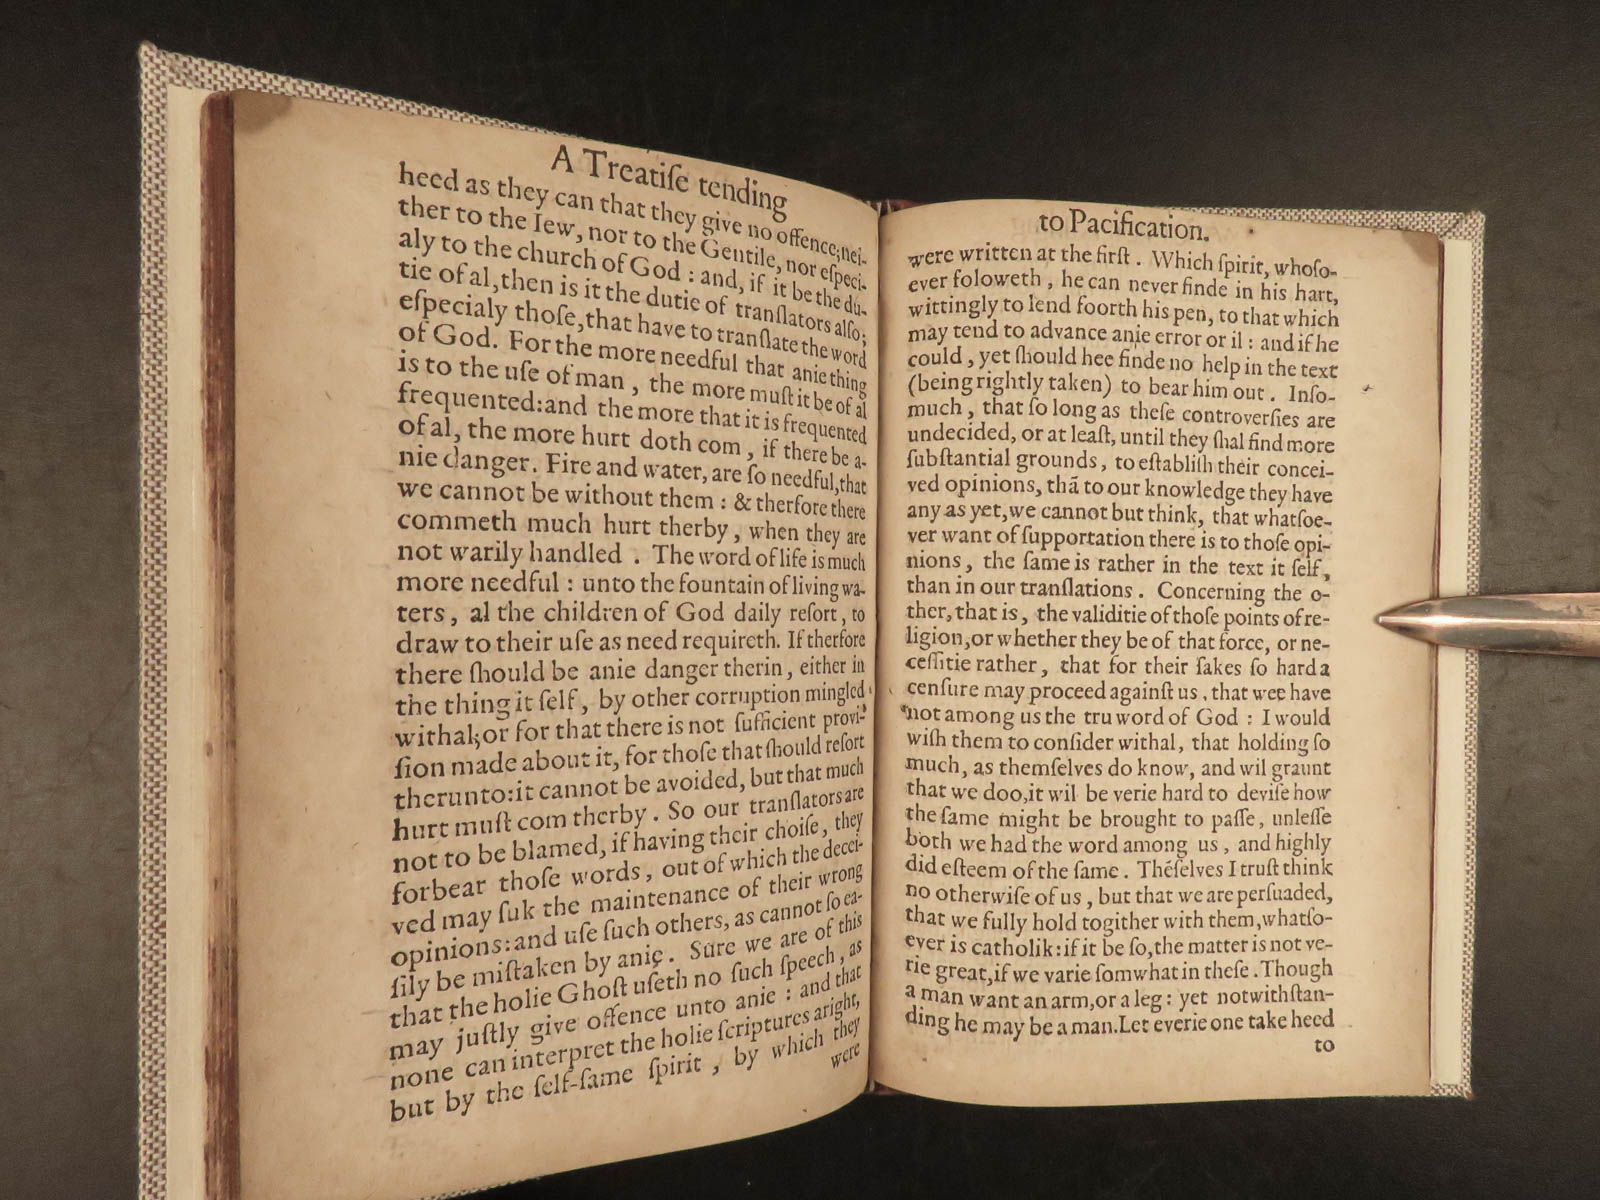 A Treatiſe tending
heed as they can that they give no offence; nei-
ther to the Iew, nor to the Gentile, nor eſpeci-
aly to the church of God : and, if it be the du-
tie of al, then is it the dutie of tranſlators alſo;
eſpecialy thoſe, that have to tranſlate the word
of God. For the more needful that anie thing
is to the uſe of man , the more muſt it be of al
frequented:and the more that it is frequented
of al, the more hurt doth com , if there be a-
nie danger. Fire and water, are ſo needful,that
we cannot be without them : & therfore there
commeth much hurt therby , when they are
not warily handled . The word of life is much
more needful : unto the fountain of living wa-
ters , al the children of God daily reſort , to
draw to their uſe as need requireth. If therfore
there ſhould be anie danger therin , either in
the thing it ſelf , by other corruption mingled
withal; or for that there is not ſufficient provi-
ſion made about it, for thoſe that ſhould reſort
therunto:it cannot be avoided, but that much
hurt muſt com therby . So our tranſlators are
not to be blamed, if having their choiſe , they
forbear thoſe words , out of which the decei-
ved may ſuk the maintenance of their wrong
opinions:and uſe ſuch others, as cannot ſo ea-
ſily be miſtaken by anie. Sure we are of this
that the holie Ghoſt uſeth no ſuch ſpeech , as
may juſtly give offence unto anie : and that
none can interpret the holie ſcriptures aright,
but by the ſelf-ſame ſpirit , by which they
were
to Pacification.
were written at the firſt . Which ſpirit, whoſo-
ever foloweth , he can never finde in his hart,
wittingly to lend foorth his pen, to that which
may tend to advance anie error or il : and if he
could , yet ſhould hee finde no help in the text
(being rightly taken) to bear him out . Inſo-
much , that ſo long as theſe controverſies are
undecided, or at leaſt, until they ſhal find more
ſubſtantial grounds , to eſtabliſh their concei-
ved opinions, thã to our knowledge they have
any as yet, we cannot but think, that whatſoe-
ver want of ſupportation there is to thoſe opi-
nions , the ſame is rather in the text it ſelf ,
than in our tranſlations . Concerning the o-
ther, that is , the validitie of thoſe points of re-
ligion, or whether they be of that force, or ne-
ceſſitie rather , that for their ſakes ſo hard a
cenſure may proceed againſt us , that wee have
not among us the tru word of God : I would
wiſh them to conſider withal, that holding ſo
much, as themſelves do know, and wil graunt
that we doo, it wil be verie hard to deviſe how
the ſame might be brought to paſſe , unleſſe
both we had the word among us , and highly
did eſteem of the ſame . Thẽſelves I truſt think
no otherwiſe of us , but that we are perſuaded,
that we fully hold togither with them, whatſo-
ever is catholik : if it be ſo, the matter is not ve-
rie great, if we varie ſomwhat in theſe . Though
a man want an arm, or a leg : yet notwithſtan-
ding he may be a man. Let everie one take heed
to